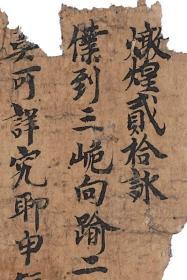 燉煌貳拾詠
僕到三峗向踰二
莫可詳究聊申